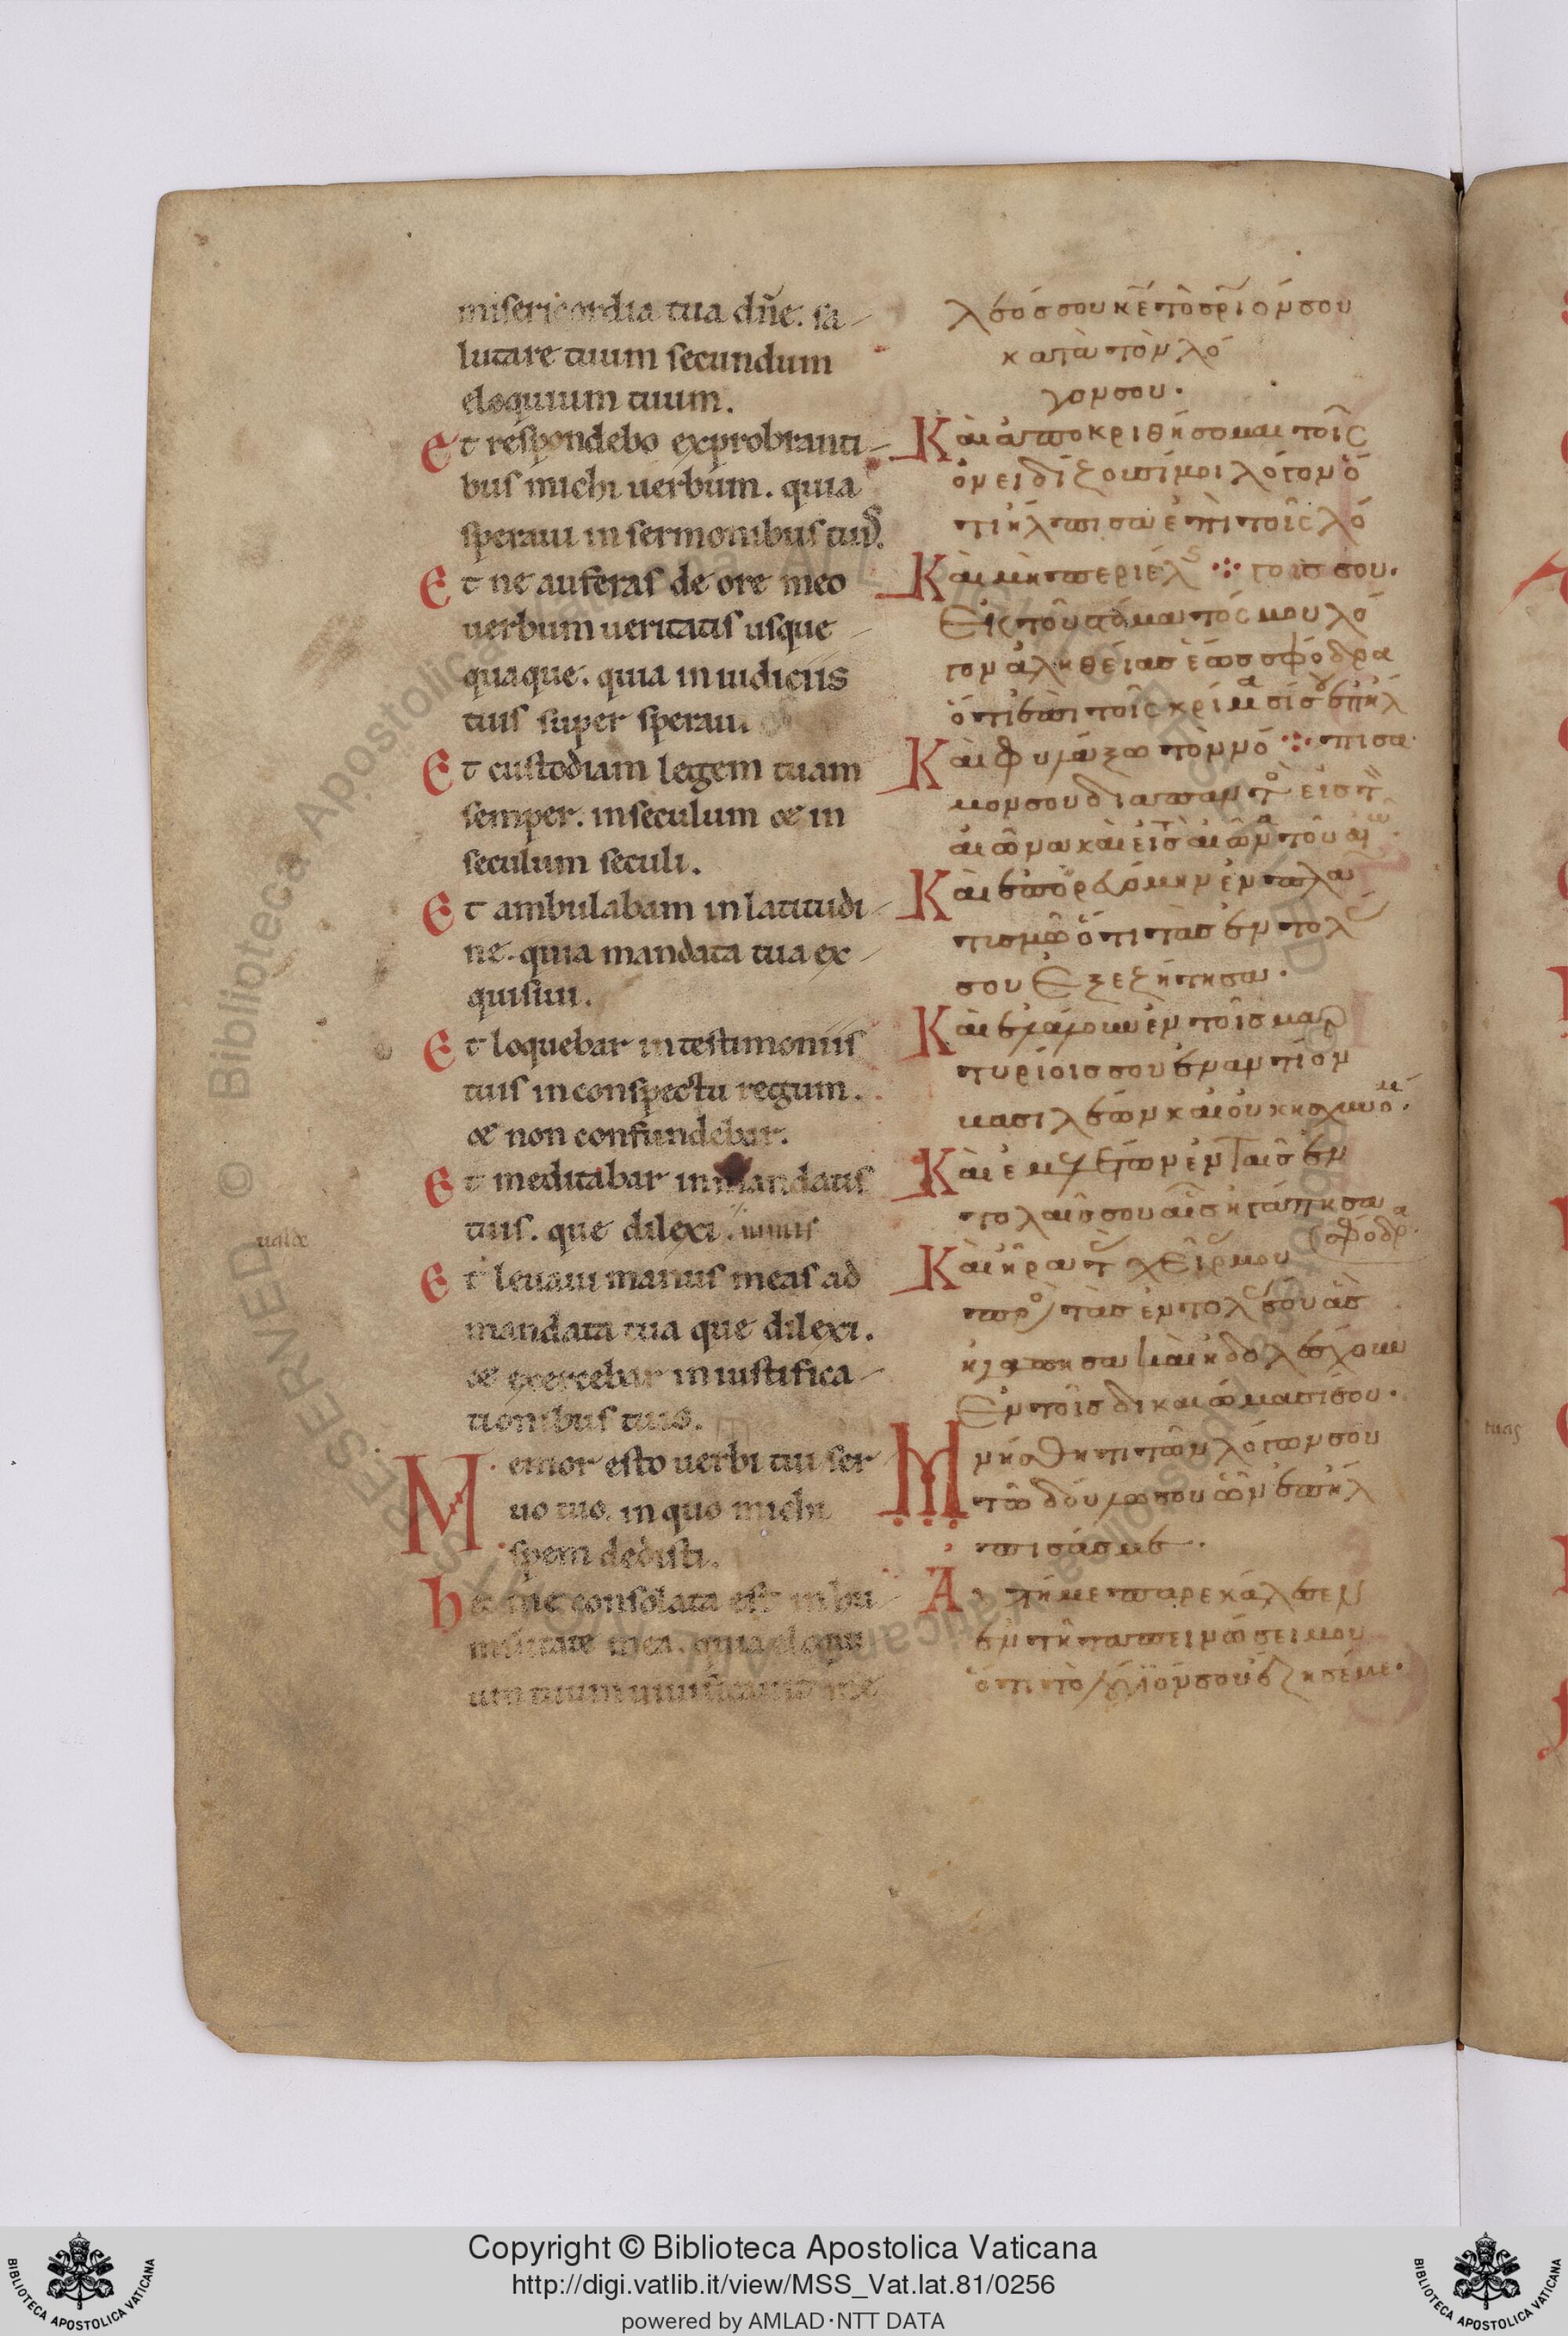 misericordia tua dñe. sa
lutare tuum secundum
eloquium tuum.
Et respondebo exprobranti
bus michi uerbum. quia
speraui in sermonibus tuis.
Et ne auferas de ore meo
uerbum ueritatis usque
quaque. quia in iudiciis
tuis super speraui
Et custodiam legem tuam
semper. in seculum & in
seculum seculi.
Et ambulabam in latitudi
ne. quia mandata tua ex
quisiui.
Et loquebar in testimoniis
tuis in conspectu regum.
& non confundebar.
Et meditabar in mandatis
tuis. que dilexi. nimis
ualde
Et leuaui manus meas ad
mandata tua que dilexi.
& exercebar in iustifica
tionibus tuis.
Memor esto uerbi tui ser
uo tuo. in quo michi
spem dedisti.
hec me consolata est in hu
militate mea. quia eloqui
um tuum uiuificauit me
λεόσ σου κ̅ε̅ τὸ σρ̅ίόν σου
κατὰ τὸν λό
γον σου.
Κὰι ἀποκριθήσομαι τοῖς
ὀνειδίζουσί μοι λόγον ὁ
τι ἤλπισα ἐπὶ τοῖς λό
γοισ σου.
Κὰι μὴ περιέλς
Ἐκ τοῦ στόματός μου λό
γον ἀληθείασ ἑώσ σφόδρα
ὁτι ἐπὶ τοῖς κρίμασί σου ἐπήλ
πισα.
Κὰι φυλάξω τὸν νό
μον σου διαπαντὸ εἰσ τ
αιῶνα κὰι εἰσ αιῶνα τοῦ αἰῶ
Κὰι ἐπορευόμην ἐν πλα
τισμῶ ὅτι τὰσ ἐντολ
σου Ἐξεζήτησα.
Κὰι ἐλάλουν ἐν τοῖσ μαρ
τυρίοισ σου ἐναντίον
βασιλέων κὰι ὀυκ ησχυνό.
Κὰι ἐμελέτων ἐν ταῖσ ἐν
τολαῖσ σου αἷσ ἠγάπησα
σφόδρα.
Κὰι ἦρα τ χεῖρ μου
πρὸ τὰσ ἐντολ σου ἃσ
ἠγάπησα κὰι ἠδολέσχουν
Ἐν τοῖσ δικαιώμασί σου.
Μνήσθητι τῶν λόγων σου
τῶ δούλω σου ὧν ἐπήλ
πισάσ με.
Αὑτή με παρεκάλεσεν
ἐν τῆ ταπεινώσει μου
ὅτι τὸ λόγιόν σου ἔζησέ με.
Copyright © Biblioteca Apostolica Vaticana
http://digi.vatlib.it/view/MSS_Vat.lat.81/0256
powered by AMLAD·NTT DATA